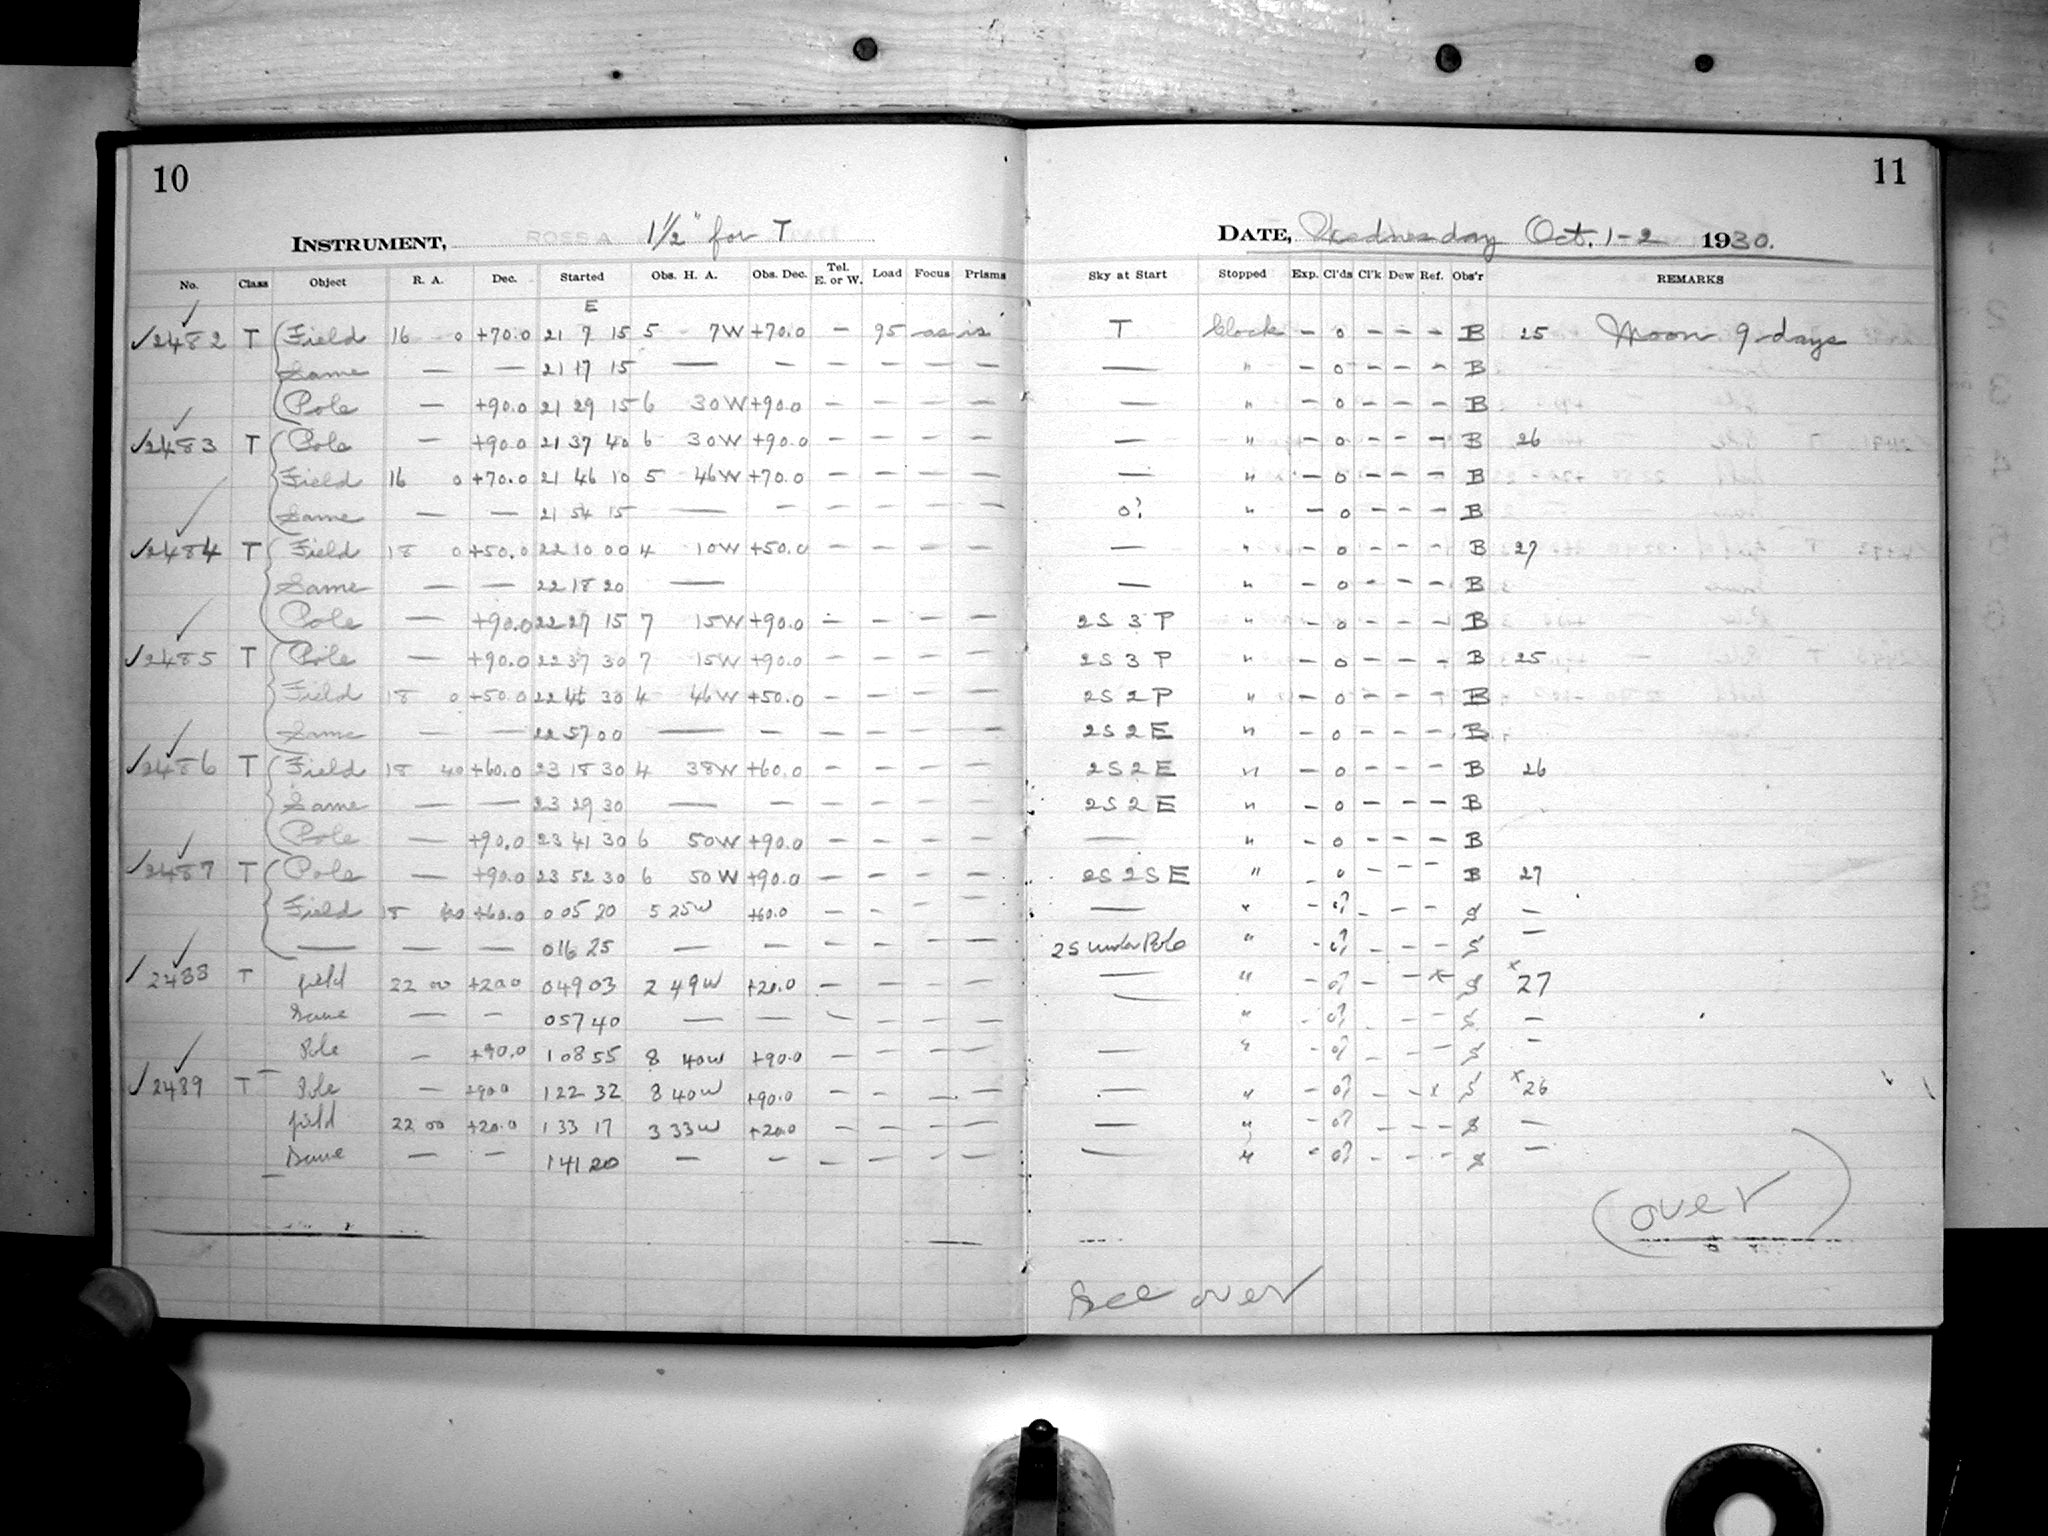 10
INSTRUMENT, 1½" for T
No. Class Object R. A. Dec. Started Obs. H. A. Obs. Dec. Tel. E. or W. Load Focus Prisms
E
✓2482 T Field 16 0 +70.0 21 7 15 5 7W +70.0 — 95 as is
Same — — 21 17 15 — — — — — —
Pole — +90.0 21 29 15 6 30W +90.0 — — — —
✓2483 T Pole — +90.0 21 37 40 6 30W +90.0 — — — —
Field 16 0 +70.0 21 46 10 5 46W +70.0 — — — —
Same — — 21 54 15 — — — — — —
✓2484 T Field 18 0 +50.0 22 10 00 4 10W +50.0 — — — —
Same — — 22 18 20 —
Pole — +90.0 22 27 15 7 15W +90.0 — — — —
✓2485 T Pole — +90.0 22 37 30 7 15W +90.0 — — — —
Field 18 0 +50.0 22 46 30 4 46W +50.0 — — — —
Same — — 22 57 00 — — — — — —
✓2486 T Field 18 40 +60.0 23 18 30 4 38W +60.0 — — — —
Same — — 23 29 30 — — — — — —
Pole — +90.0 23 41 30 6 50W +90.0 — — — —
✓2487 T Pole — +90.0 23 52 30 6 50W +90.0 — — — —
Field 18 40 +60.0 0 05 20 5 25W +60.0 — — — —
— — — 0 16 25 — — — — — —
✓2488 T field 22 00 +20.0 0 49 03 2 49W +20.0 — — — —
Same — — 0 57 40 — — — — — —
Pole — +90.0 1 08 55 8 40W +90.0 — — — —
✓2489 T Pole — +90.0 1 22 32 8 40W +90.0 — — — —
field 22 00 +20.0 1 33 17 3 33W +20.0 — — — —
Same — — 1 41 20 — — — — — —
11
DATE, Wednesday Oct. 1-2 1930.
Sky at Start Stopped Exp. Cl'ds Cl'k Dew Ref. Obs'r REMARKS
T Clock — 0 — — — B 25 Moon 9 days
— " — 0 — — — B
— " — 0 — — — B
— " — 0 — — — B 26
— " — 0 — — — B
0? " — 0 — — — B
— " — 0 — — — B 27
— " — 0 — — — B
2S 3 P " — 0 — — — B
2S 3 P " — 0 — — — B 25
2S 2 P " — 0 — — — B
2S 2 E " — 0 — — — B
2S 2 E " — 0 — — — B 26
2S 2 E " — 0 — — — B
— " — 0 — — — B
2S 2S E " — 0 — — — B 27
— " — 0? — — — S —
2S under Pole " — 0? — — — S —
— " — 0? — — x S x27
" — 0? — — — S —
— " — 0? — — — S —
— " — 0? — — x S x26
— " — 0? — — — S —
— " — 0? — — — S —
(over)
See over